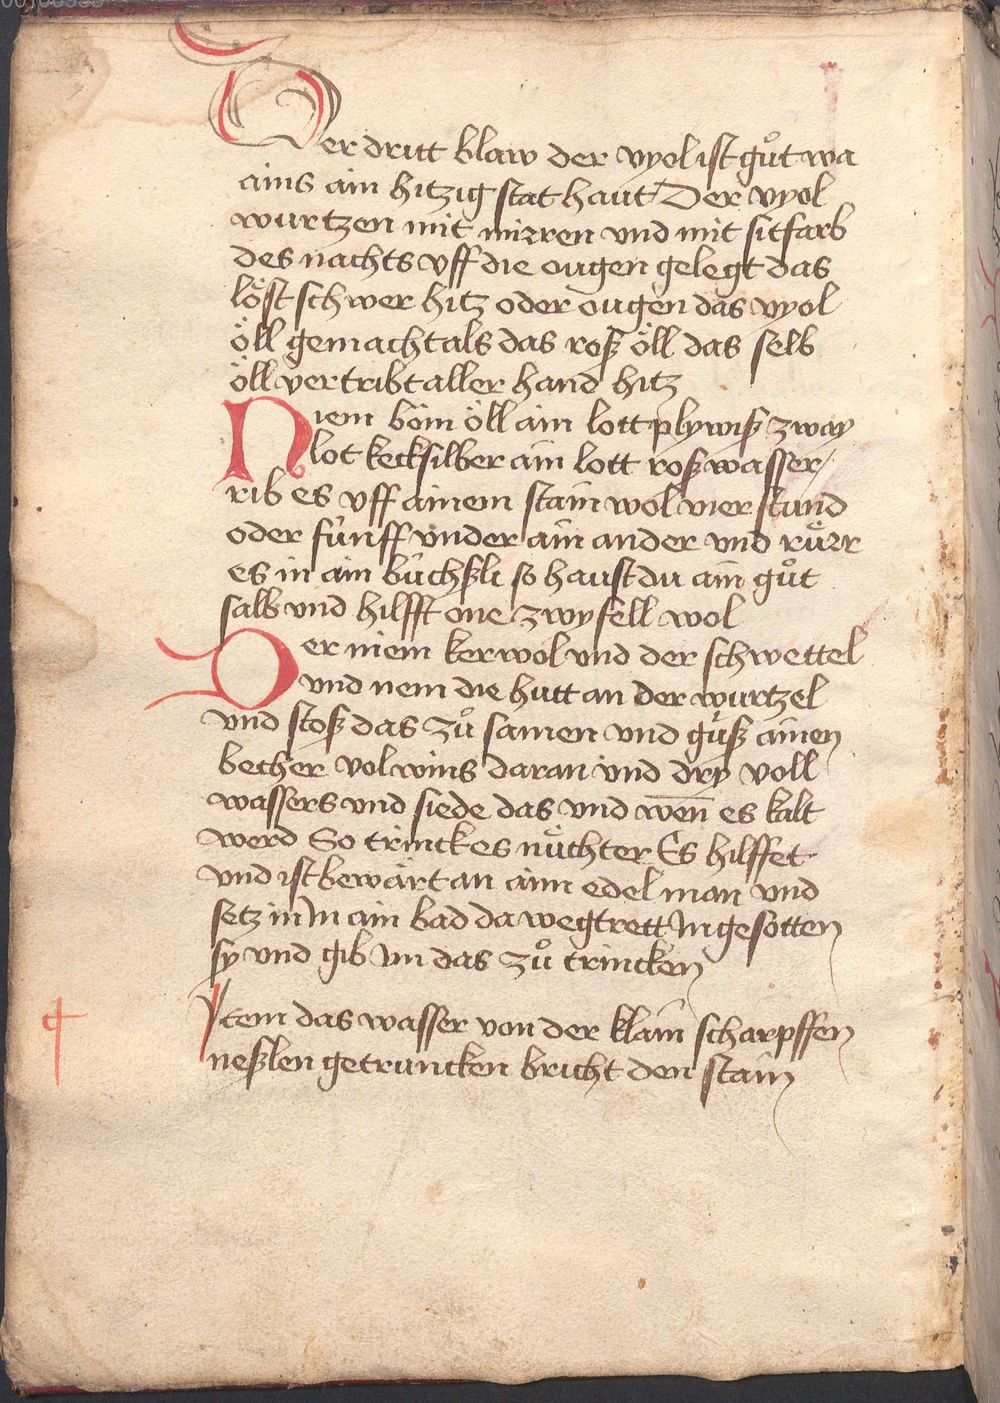 Der dritt blaw der vyol ist gůt wa
ains ain hitzig stat haut Der vyol
wurtzen mit mirren vnd mit sitfarb
des nachts vff die ougen gelegt das
löst schwer hitz oder ougen das vyol
öll gemacht als das roß öll das selb
öll vertribt aller hand hitz
Niem böm öll ain lott plywiß zway
lot kecksilber ain lott roßwasser
rib es vff ainem stain wol vier stund
oder fünff vnder ain ander vnd růrr
es in ain büchßli so haust du ain gůt
salb vnd hilfft one zwyfell wol
Der niem kerwol vnd der schwettel
vnd nem die hutt an der wurtzel
vnd stoß das zů samen vnd güß ainen
becher vol wins daran vnd dry voll
wassers vnd siede das vnd wen̄ es kalt
werd So trinck es nüchter Es hilffet
vnd ist bewärt an aim edel man vnd
setz in In ain bad da wegtrett In gesotten
sy vnd gib im das zů trincken
Item das wasser von der klain scharpffen
neßlen getruncken bricht den stain